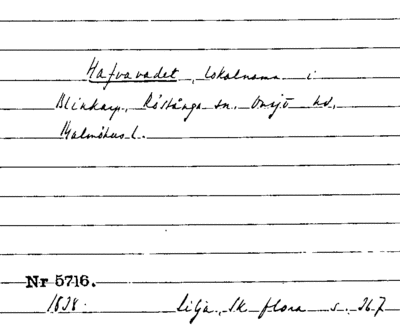 Hafvavadet, lokalnamn i
Blinkarp, Röstånga sn, Onsjö hd,
Malmöhus l.
Nr 5716.
1838. Lilja, Sk flora s. 267